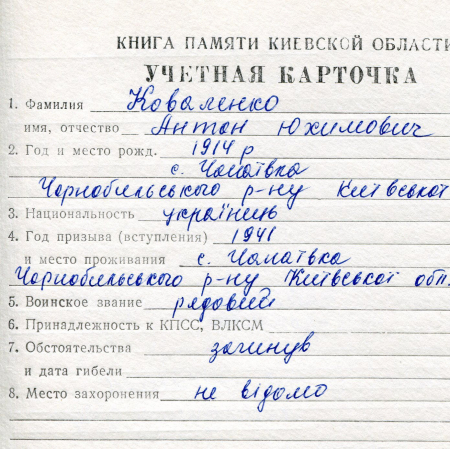 КНИГА ПАМЯТИ КИЕВСКОЙ ОБЛАСТИ
УЧЕТНАЯ КАРТОЧКА
1. Фамилия Коваленко
имя, отчество Антон Юхимович
2. Год и место рожд. 1914 р
с. Чапаївка
Чорнобильського р-ну Київської
3. Национальность українець
4. Год призыва (вступления) 1941
и место проживания с. Чапаївка
Чорнобильського р-ну Київської обл.
5. Воинское звание рядовий
6. Принадлежность к КПСС, ВЛКСМ
7. Обстоятельства загинув
и дата гибели
8. Место захоронения не відомо